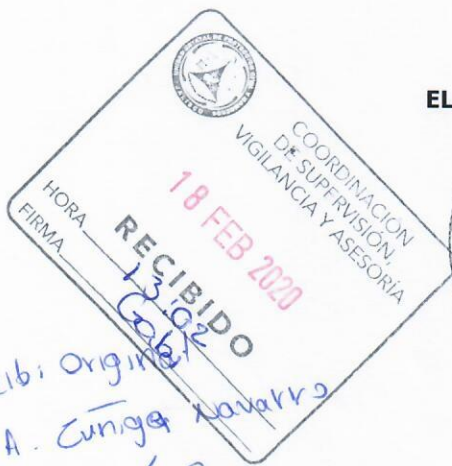 EL
COORDINACIÓN
DE SUPERVISIÓN,
VIGILANCIA Y ASESORÍA
18 FEB 2020
RECIBIDO
HORA 13:02
FIRMA Gabi
ibi Original
A. Zuniga Navarro